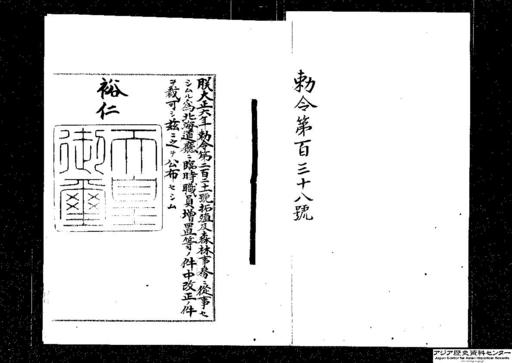 勅令第百三十八號
朕大正六年勅令第二百二十一號拓殖及森林事務ニ從事セ
シムル爲北海道廳ニ臨時職員増置等ノ件中改正ノ件
ヲ裁可シ茲ニ之ヲ公布セシム
裕仁
天皇
御璽
アジア歴史資料センター
Japan Center for Asian Historical Records